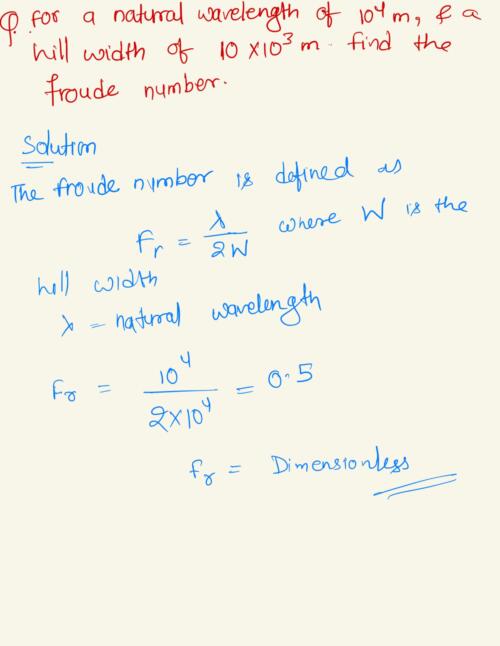 Q. for a natural wavelength of 10⁴ m, & a
hill width of 10 × 10³ m. find the
froude number.
Solution
The froude number is defined as
Fr = λ/2W where W is the
hill width
λ = natural wavelength
Fr = 10⁴/2×10⁴ = 0.5
fr = Dimensionless